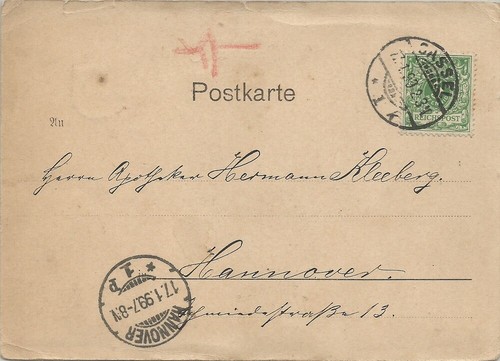 Postkarte
CASSEL
REICHSPOST
An
Herrn Apotheker Hermann Kleeberg.
Hannover.
Schmiedestraße 13.
HANNOVER
17.1.99.7-8N
* 1 P